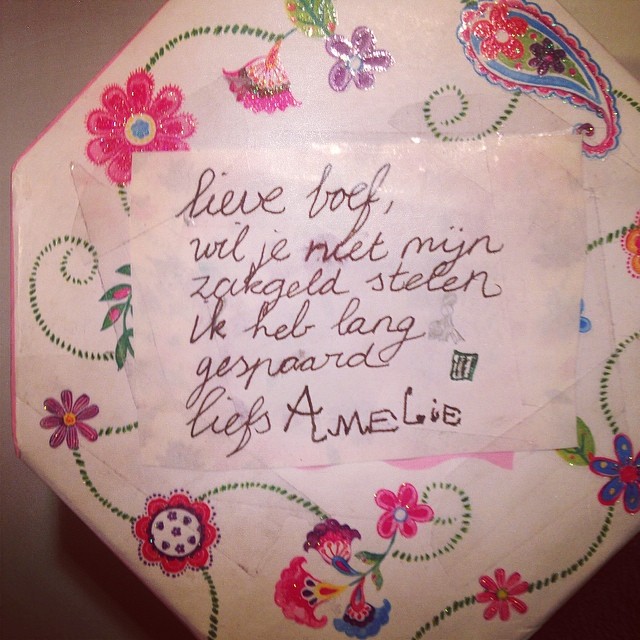 lieve boef,
wil je niet mijn
zakgeld stelen
ik heb lang
gespaard
liefs AMELIE